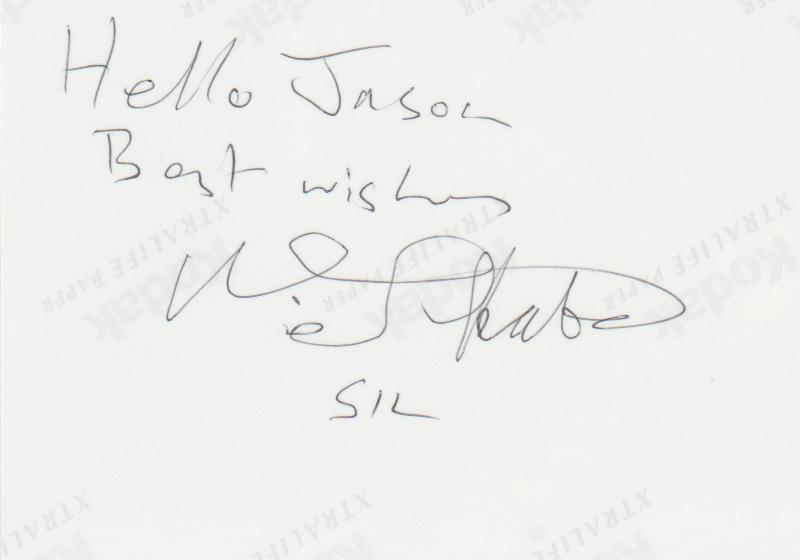 Hello Jason
Best wishes
SIL
XTRALIFE PAPER
Kodak
XTRALIFE PAPER
Kodak
XTRALIFE PAPER
Kodak